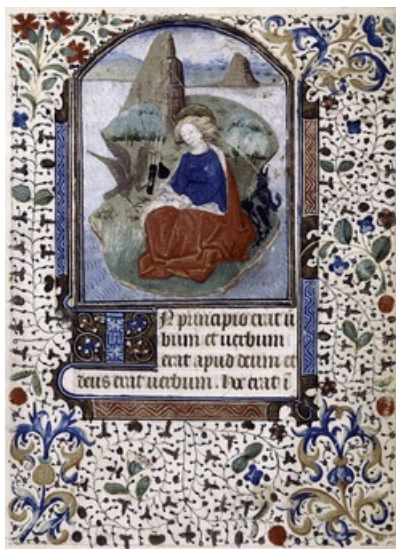 IN principio erat u
bum et uerbum
erat apud deum et
deus erat uerbum. Hoc erat i